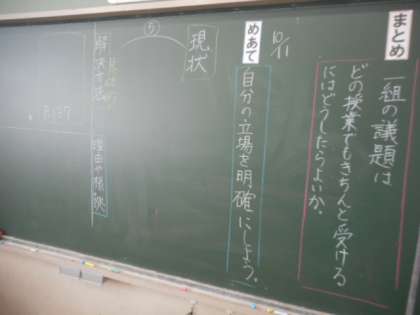 まとめ
一組の議題は
どの授業でもきちんと受ける
にはどうしたらよいか。
10/11
めあて
自分の立場を明確にしよう。
現状
解決方法
理由や根拠
P.137